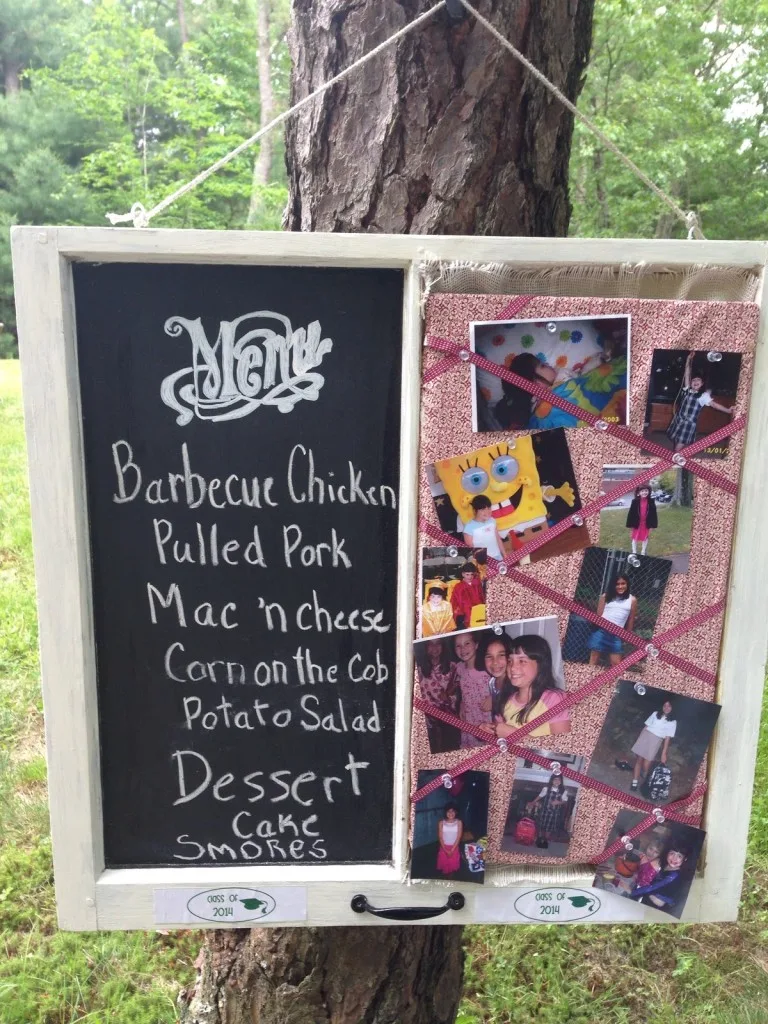 Menu
Barbecue Chicken
Pulled Pork
Mac 'n cheese
Corn on the Cob
Potato Salad
Dessert
Cake
SMORES
CLASS OF
2014
CLASS OF
2014